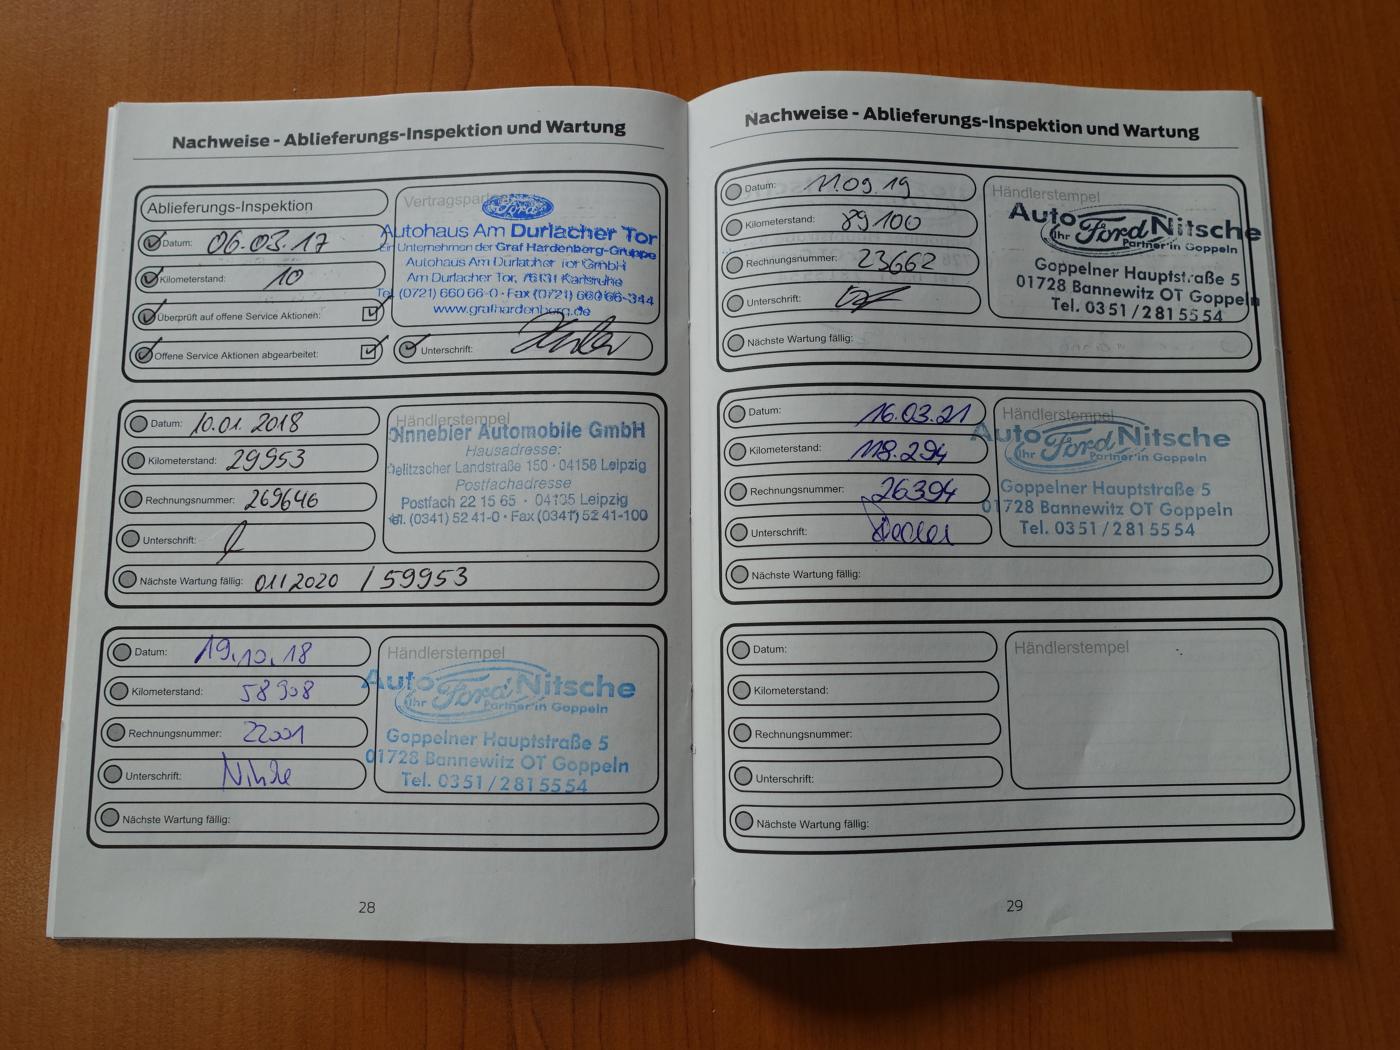 Nachweise - Ablieferungs-Inspektion und Wartung
Ablieferungs-Inspektion
Datum: 06.03.17
Kilometerstand: 10
Überprüft auf offene Service Aktionen:
Offene Service Aktionen abgearbeitet:
Ford
Autohaus Am Durlacher Tor
Ein Unternehmen der Graf Hardenberg-Gruppe
Autohaus Am Durlacher Tor GmbH
Am Durlacher Tor, 76131 Karlsruhe
Tel. (0721) 660 66-0 · Fax (0721) 660 66-344
www.grafhardenberg.de
Unterschrift:
Datum: 10.01.2018
Kilometerstand: 29953
Rechnungsnummer: 269646
Unterschrift:
Händlerstempel
Automobile GmbH
Hausadresse:
Delitzscher Landstraße 150 · 04158 Leipzig
Postfachadresse
Postfach 22 15 65 · 04135 Leipzig
Tel. (0341) 52 41-0 · Fax (0341) 52 41-100
Nächste Wartung fällig: 01/2020 / 59953
Datum: 19.10.18
Kilometerstand: 58908
Rechnungsnummer: 22001
Unterschrift:
Händlerstempel
Auto Ford Nitsche
Ihr Partner in Goppeln
Goppelner Hauptstraße 5
01728 Bannewitz OT Goppeln
Tel. 03 51 / 2 81 55 54
Nächste Wartung fällig:
28
Nachweise - Ablieferungs-Inspektion und Wartung
Datum: 11.09.19
Kilometerstand: 89100
Rechnungsnummer: 23662
Unterschrift:
Händlerstempel
Auto Ford Nitsche
Ihr Partner in Goppeln
Goppelner Hauptstraße 5
01728 Bannewitz OT Goppeln
Tel. 03 51 / 2 81 55 54
Nächste Wartung fällig:
Datum: 16.03.21
Kilometerstand: 118.294
Rechnungsnummer: 26394
Unterschrift:
Händlerstempel
Auto Ford Nitsche
Ihr Partner in Goppeln
Goppelner Hauptstraße 5
01728 Bannewitz OT Goppeln
Tel. 03 51 / 2 81 55 54
Nächste Wartung fällig:
Datum:
Kilometerstand:
Rechnungsnummer:
Unterschrift:
Händlerstempel
Nächste Wartung fällig:
29